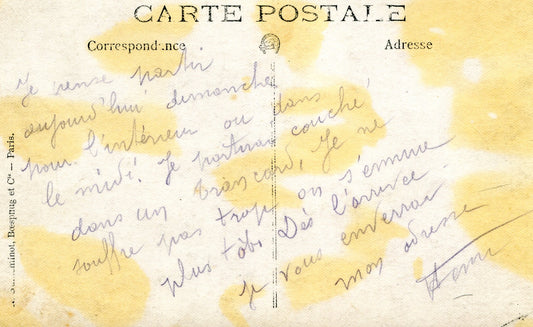 CARTE POSTALE
Correspondance
Adresse
Je pense partir
aujourd'hui dimanche
pour l'intérieur ou dans
le midi. Je partirai couché
dans un brancard, Je ne
souffre pas trop on s'emmue
plus tôt. Dès l'arrivée
je vous enverrai
mon adresse
Henri
Bespmug et Cie — Paris.